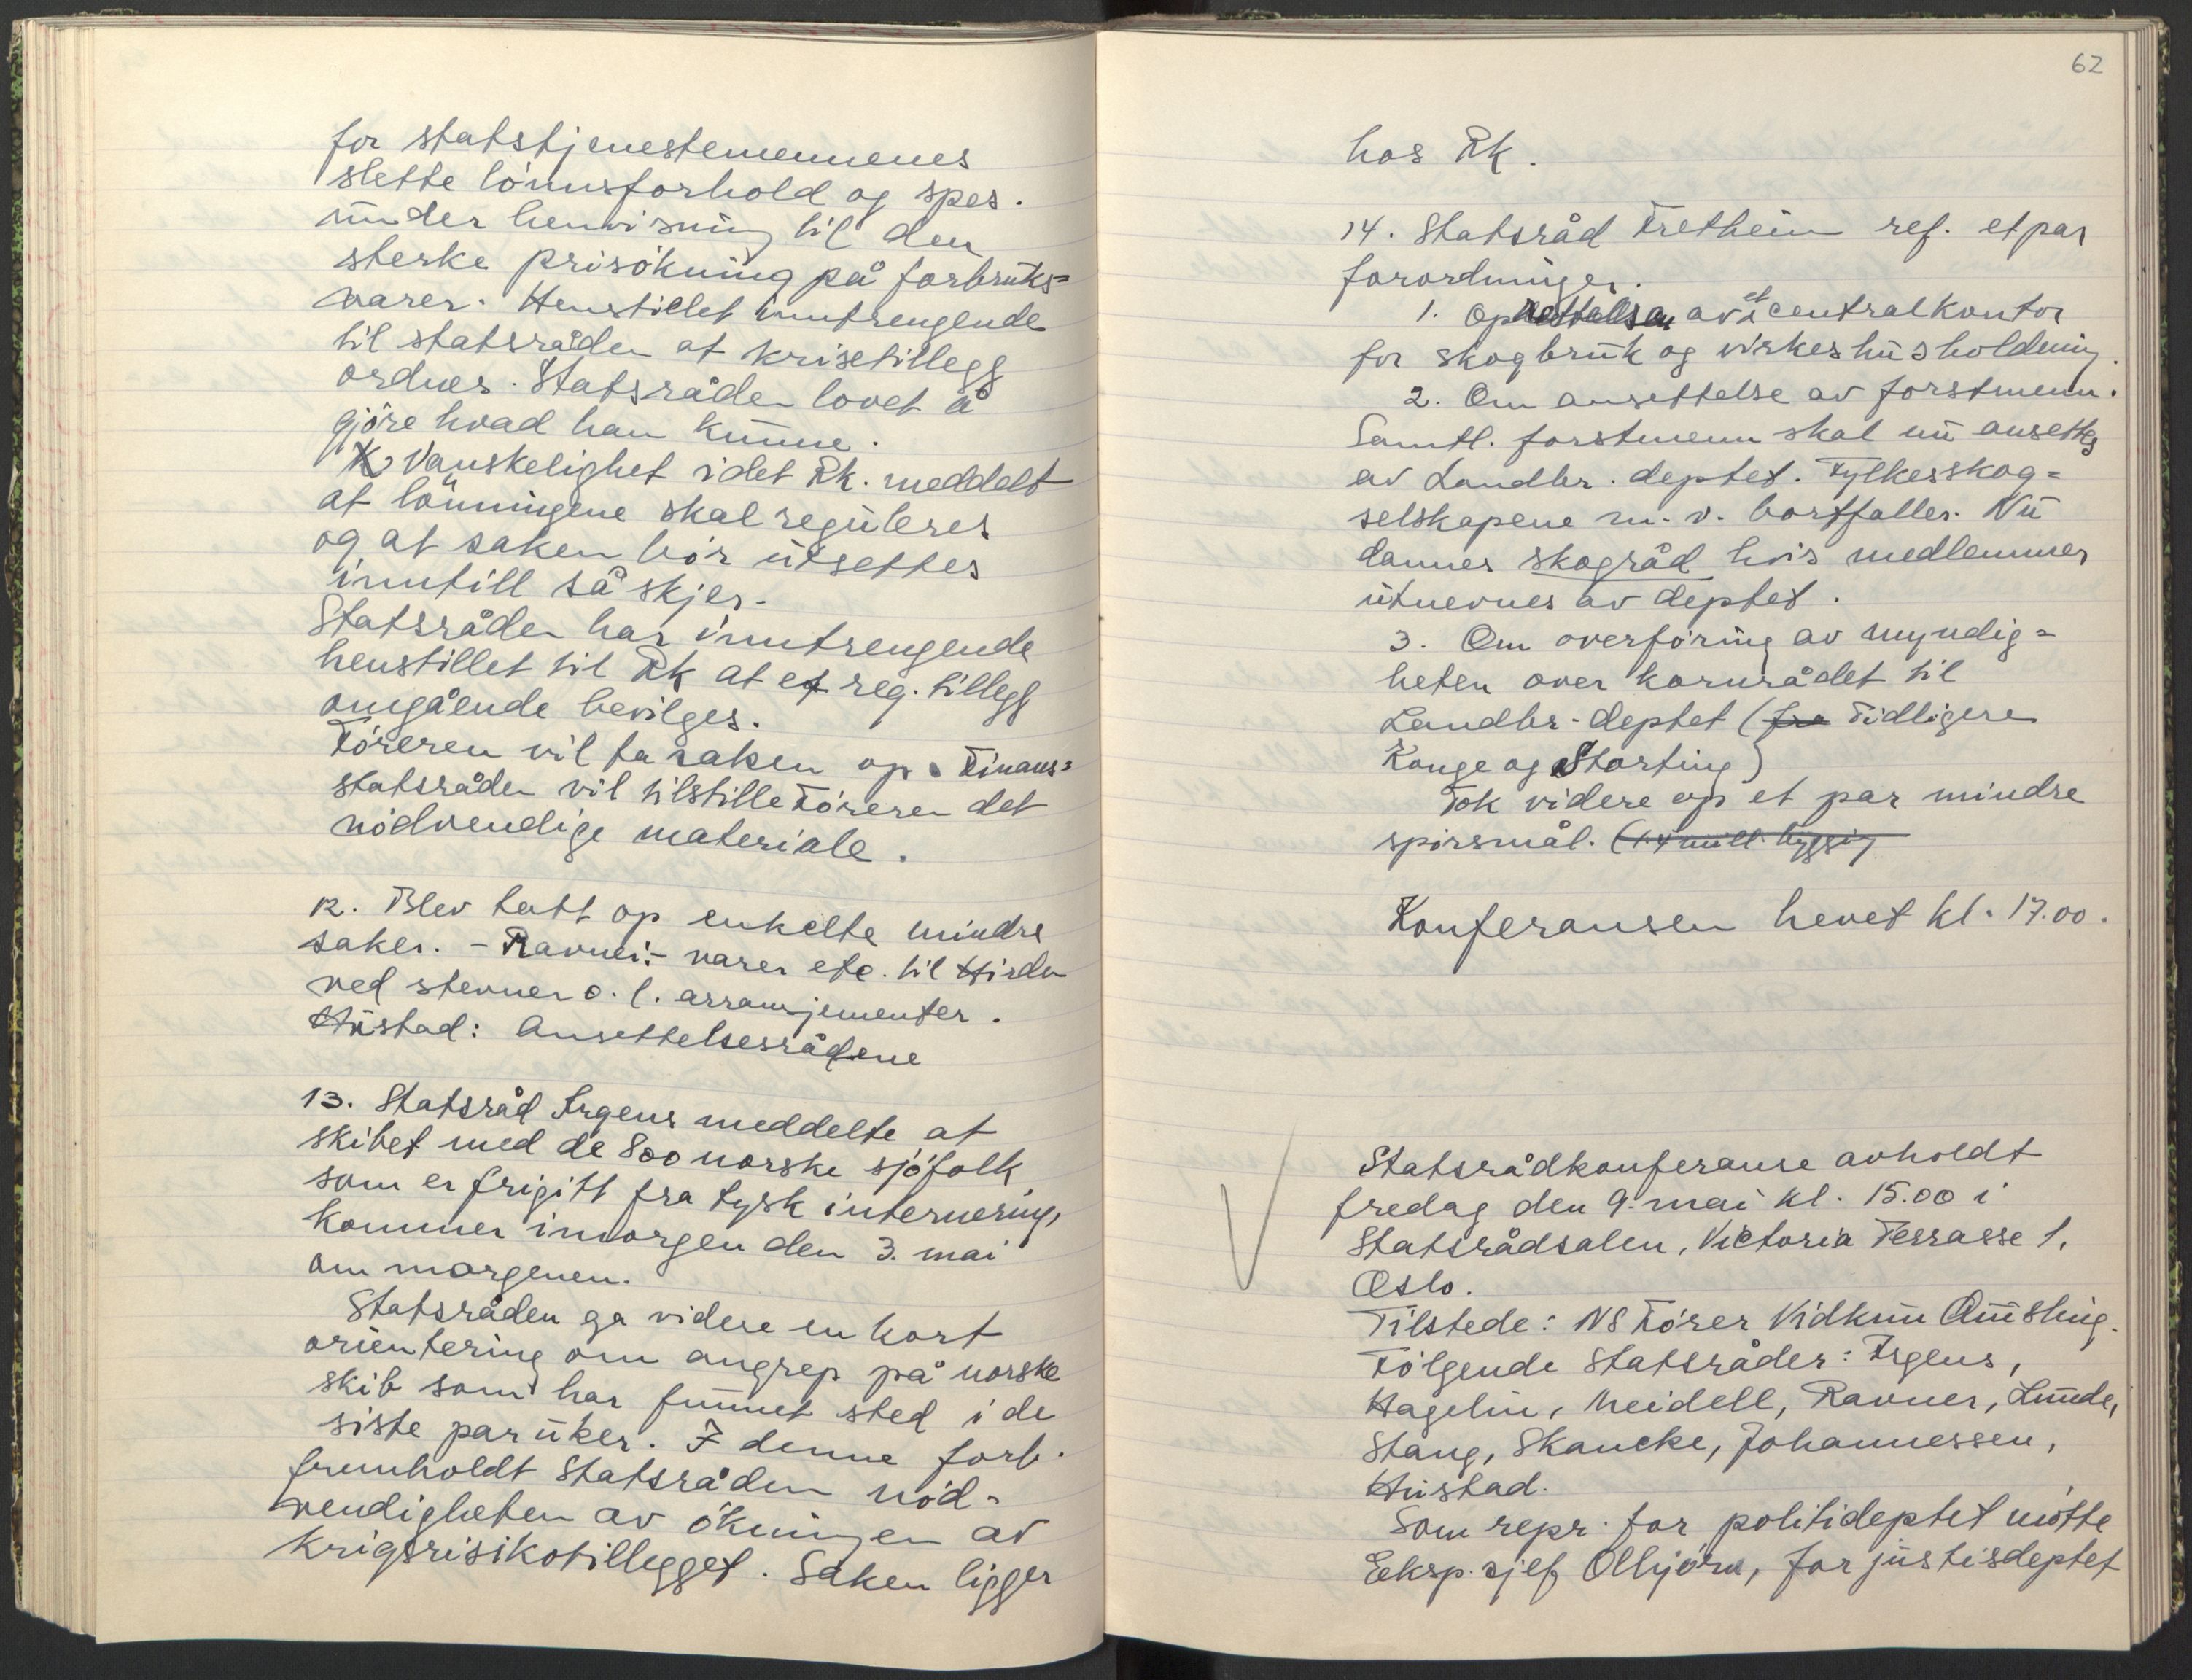 for statstjenestemennenes
slette lönnsforhold og spes.
under henvisning til den
sterke prisökning på forbruks=
varer. Henstillet inntrengende
til statsråden at krisetillegg
ordnes. Statsråden lovet å
gjöre hvad han kunne.
Vanskelighet idet Rk. meddelt
at lönningene skal reguleres
og at saken bör utsettes
inntill så skjer.
Statsråden har inntrengende
henstillet til Rk at et reg. tillegg
omgående bevilges.
Föreren vil ta saken op. Finans=
statsråden vil tilstille Föreren det
nödvendige materiale.
12. Blev tatt op enkelte mindre
saker. - Ravner:- varer etc. til Hirden
ved stevner o. l. arransjementer.
Hustad: Ansettelsesrådene
13. Statsråd Irgens meddelte at
skibet med de 800 norske sjöfolk
som er frigitt fra tysk internering,
kommer imorgen den 3. mai
om morgenen.
Statsråden ga videre en kort
orientering om angrep på norske
skib som har funnet sted i de
siste par uker. I denne forb.
fremholdt Statsråden nöd=
vendigheten av ökningen av
krigsrisikotillegget. Saken ligger
62
hos Rk.
14. Statsråd Fretheim ref. et par
forordninger.
1. Oprettelsen av et centralkontor
for skogbruk og virkeshusholdning.
2. Om ansettelse av forstmenn.
Samtl. forstmenn skal nu ansettes
av Landbr. deptet. Fylkesskog=
selskapene m. v. bortfaller. Nu
dannes skogråd hvis medlemmer
utnevnes av deptet.
3. Om overföring av myndig=
heten over kornrådet til
Landbr. deptet (fra Tidligere
Konge og Storting)
Tok videre op et par mindre
spörsmål. (1.4 mill.
Konferansen hevet kl. 17.00.
Statsrådkonferanse avholdt
fredag den 9. mai kl. 15.00 i
Statsrådsalen, Victoria Terrasse 1,
Oslo.
Tilstede: NS Förer Vidkun Quisling.
Fölgende Statsråder: Irgens,
Hagelin, Meidell, Ravner, Lunde,
Stang, Skancke, Johannessen,
Hustad.
Som repr. for politideptet mötte
Eksp. sjef Olbjörn, for justisdeptet